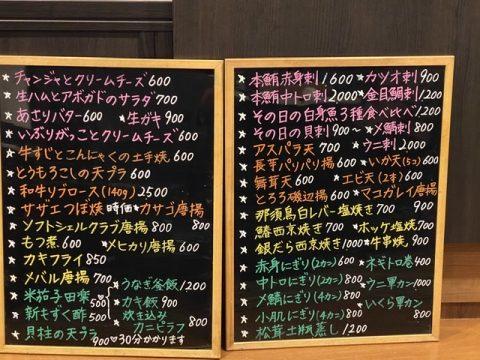 ★チャンジャとクリームチーズ600
★生ハムとアボガドのサラダ700
★あさりバター600 ★生ガキ900
★いぶりがっことクリームチーズ600
★牛すじとこんにゃくの土手焼600
★とうもろこしの天プラ600
★和牛リブロース(140g)2500
★サザエつぼ焼 時価 ★カサゴ唐揚800
★ソフトシェルクラブ唐揚800
★もつ煮600 ★メヒカリ唐揚600
★カキフライ850
★メバル唐揚700
★米茄子田楽500
★新もずく酢500
★貝柱の天プラ900
★うなぎ釜飯1200
★カキ飯900
★炊き込みカニピラフ800
♡30分かかります
★本鮪赤身刺1600 ★カツオ刺900
★本鮪中トロ刺2000 ★金目鯛刺1200
★その日の白身魚3種食べ比べ1200
★その日の貝刺900~ ★〆鯖刺900
★アスパラ天700 ★ウニ刺2000
★長芋パリパリ揚600 ★いか天(5コ)600
★舞茸天600 ★エビ天(2本)600
★とろろ磯辺揚600 ★マコガレイ唐揚800
★那須鳥白レバー塩焼き700
★鰆西京焼き700 ★ホッケ塩焼900
★銀だら西京焼1000 ★牛串焼900
★赤身にぎり(2カン)600 ★ネギトロ巻900
★中トロにぎり(2カン)800 ★ウニ軍カン
★〆鯖にぎり(4カン)800
★小肌にぎり(4カン)800 ★いくら軍カン800
★松茸土瓶蒸し1200